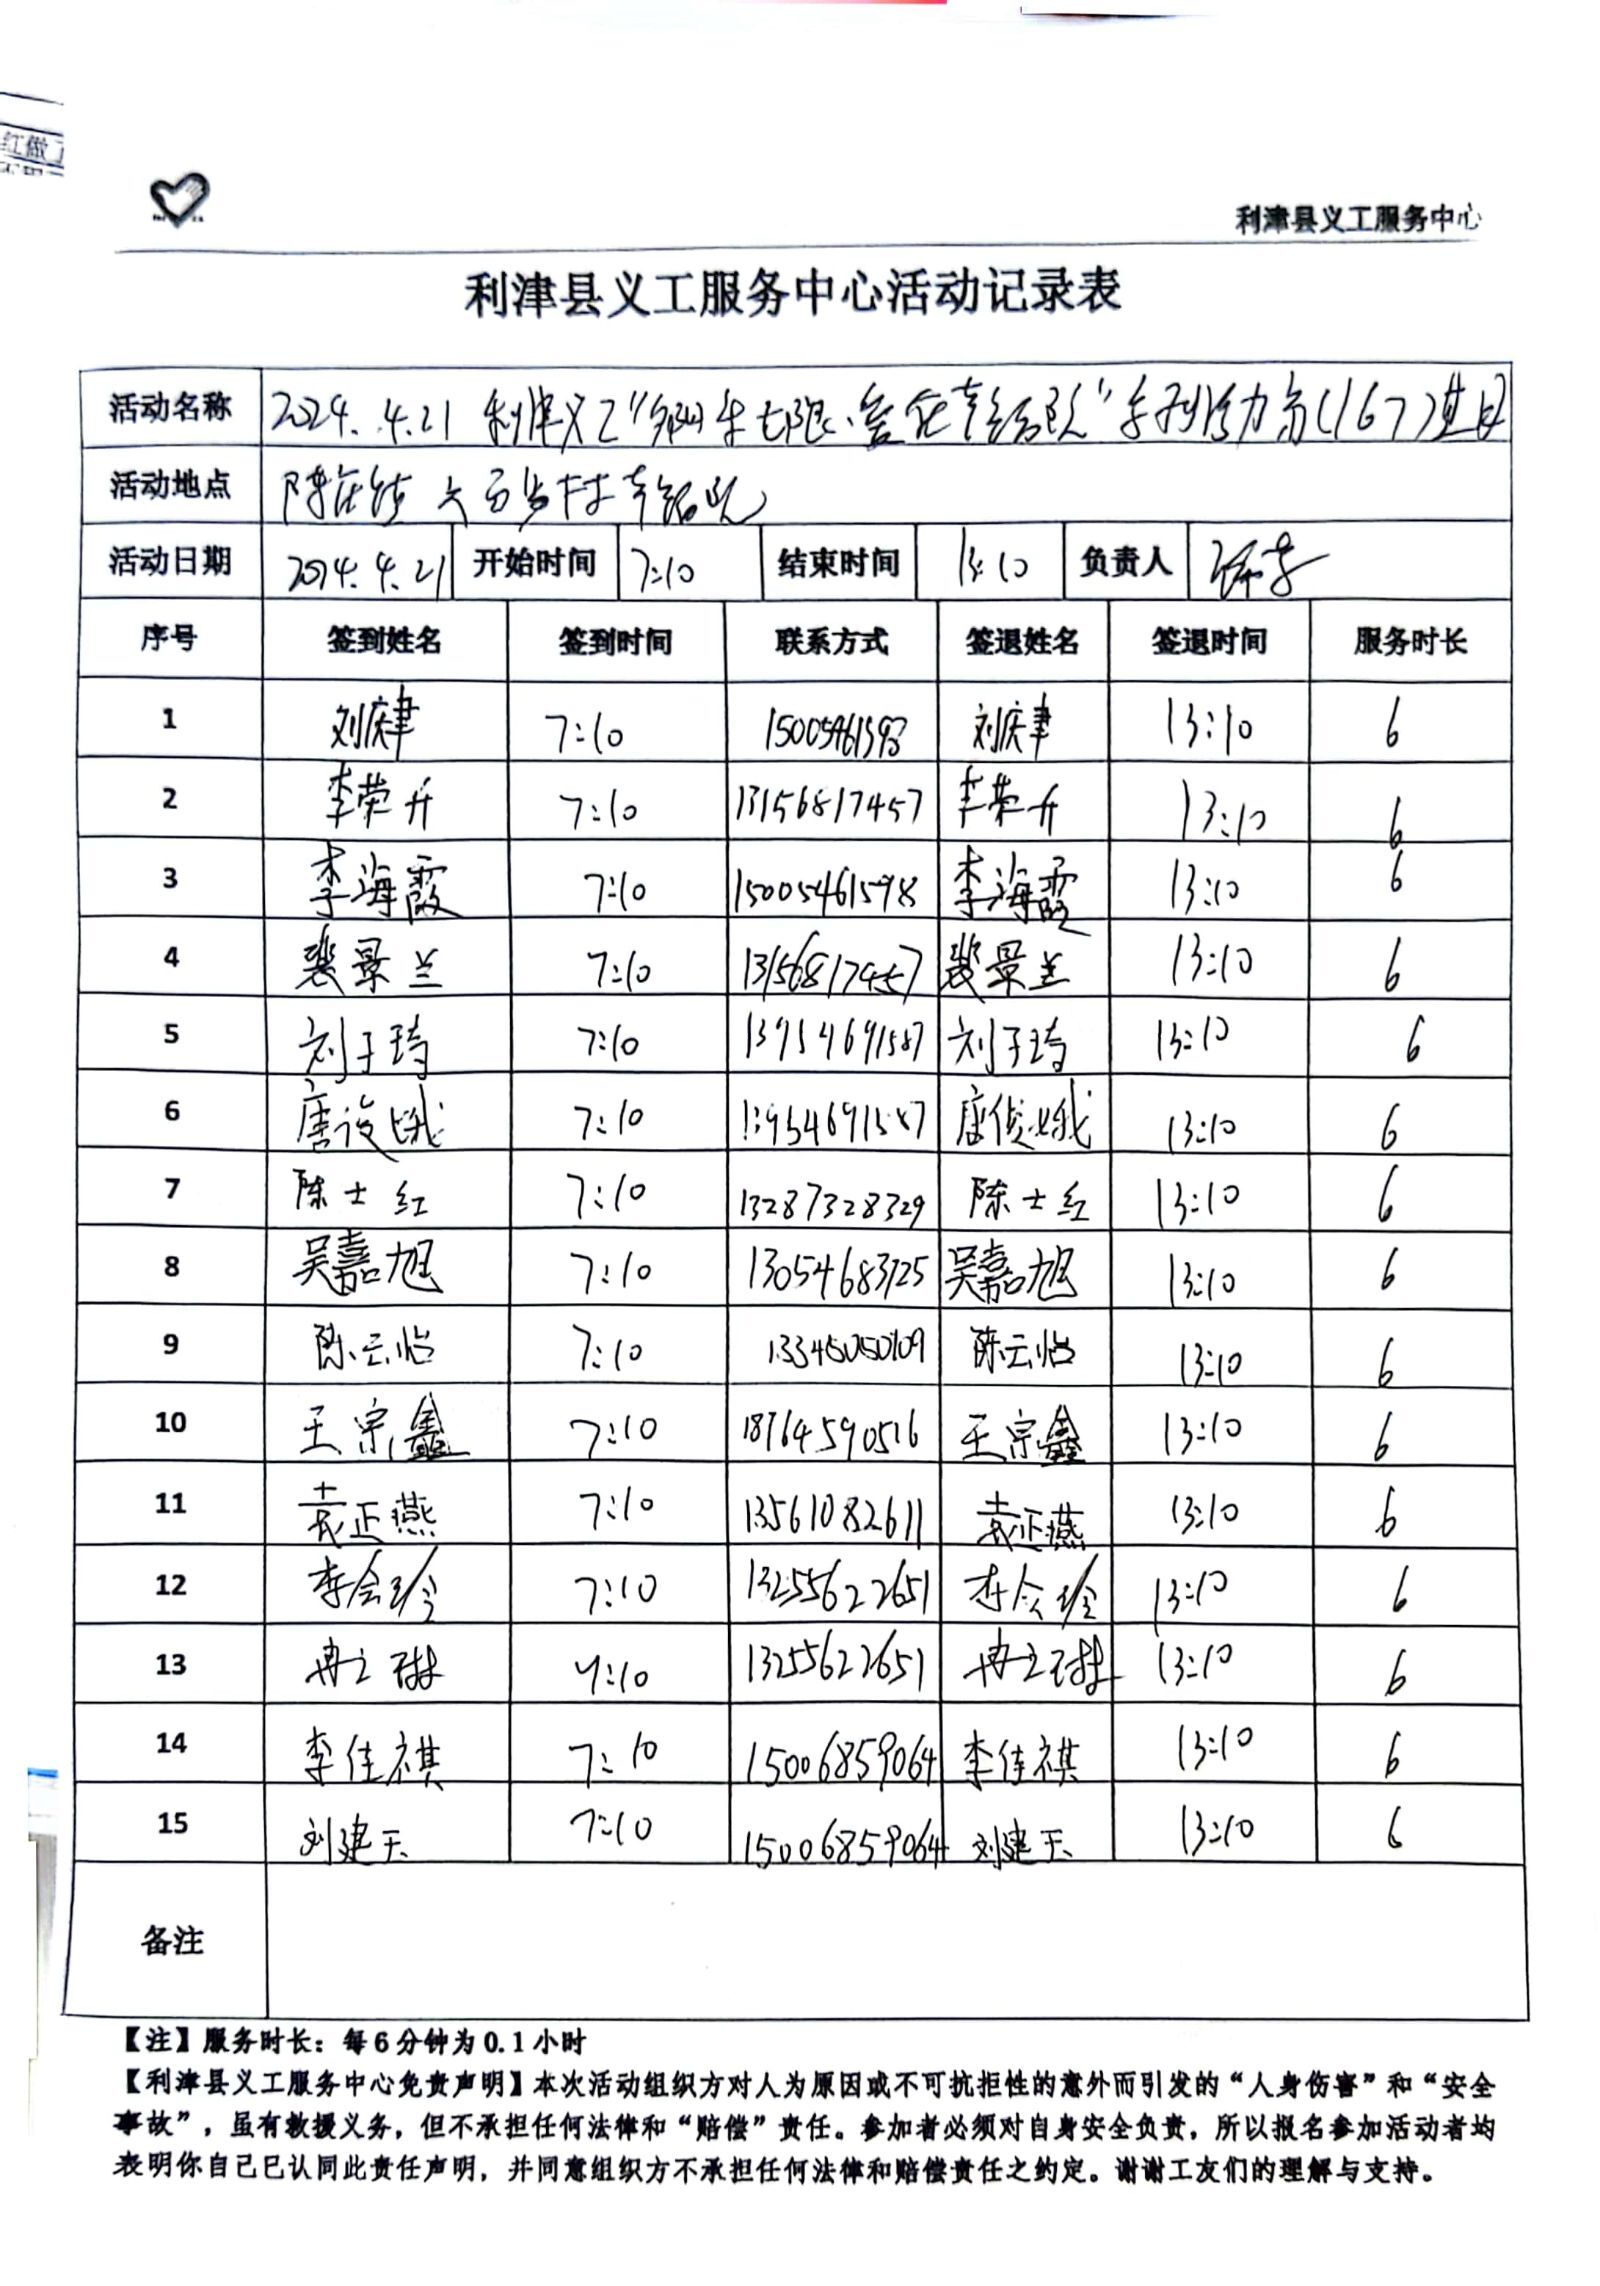 红做
利津县义工服务中心
利津县义工服务中心活动记录表
活动名称 2024.4.21 利津义工"
活动地点 陈庄镇 六百步村幸福院
活动日期 2024.4.21 开始时间 7:10 结束时间 13:10 负责人
序号 签到姓名 签到时间 联系方式 签退姓名 签退时间 服务时长
1 刘庆津 7:10 刘庆津 13:10 6
2 李荣升 7:10 13156817457 李荣升 13:10 6
3 李海霞 7:10 15005461598 李海霞 13:10 6
4 裴景兰 7:10 13156817457 裴景兰 13:10 6
5 刘子琦 7:10 刘子琦 13:10 6
6 唐 娥 7:10 唐 娥 13:10 6
7 陈士红 7:10 13287328329 陈士红 13:10 6
8 吴嘉旭 7:10 13054683725 吴嘉旭 13:10 6
9 陈云怡 7:10 陈云怡 13:10 6
10 王宗鑫 7:10 18764590516 王宗鑫 13:10 6
11 袁正燕 7:10 13561082611 袁正燕 13:10 6
12 李会珍 7:10 13255622651 李会珍 13:10 6
13 冉之琳 7:10 13255622651 冉之琳 13:10 6
14 李佳祺 7:10 15006859064 李佳祺 13:10 6
15 刘建天 7:10 15006859064 刘建天 13:10 6
备注
【注】服务时长：每6分钟为0.1小时
【利津县义工服务中心免责声明】本次活动组织方对人为原因或不可抗拒性的意外而引发的“人身伤害”和“安全
事故”，虽有救援义务，但不承担任何法律和“赔偿”责任。参加者必须对自身安全负责，所以报名参加活动者均
表明你自己已认同此责任声明，并同意组织方不承担任何法律和赔偿责任之约定。谢谢工友们的理解与支持。